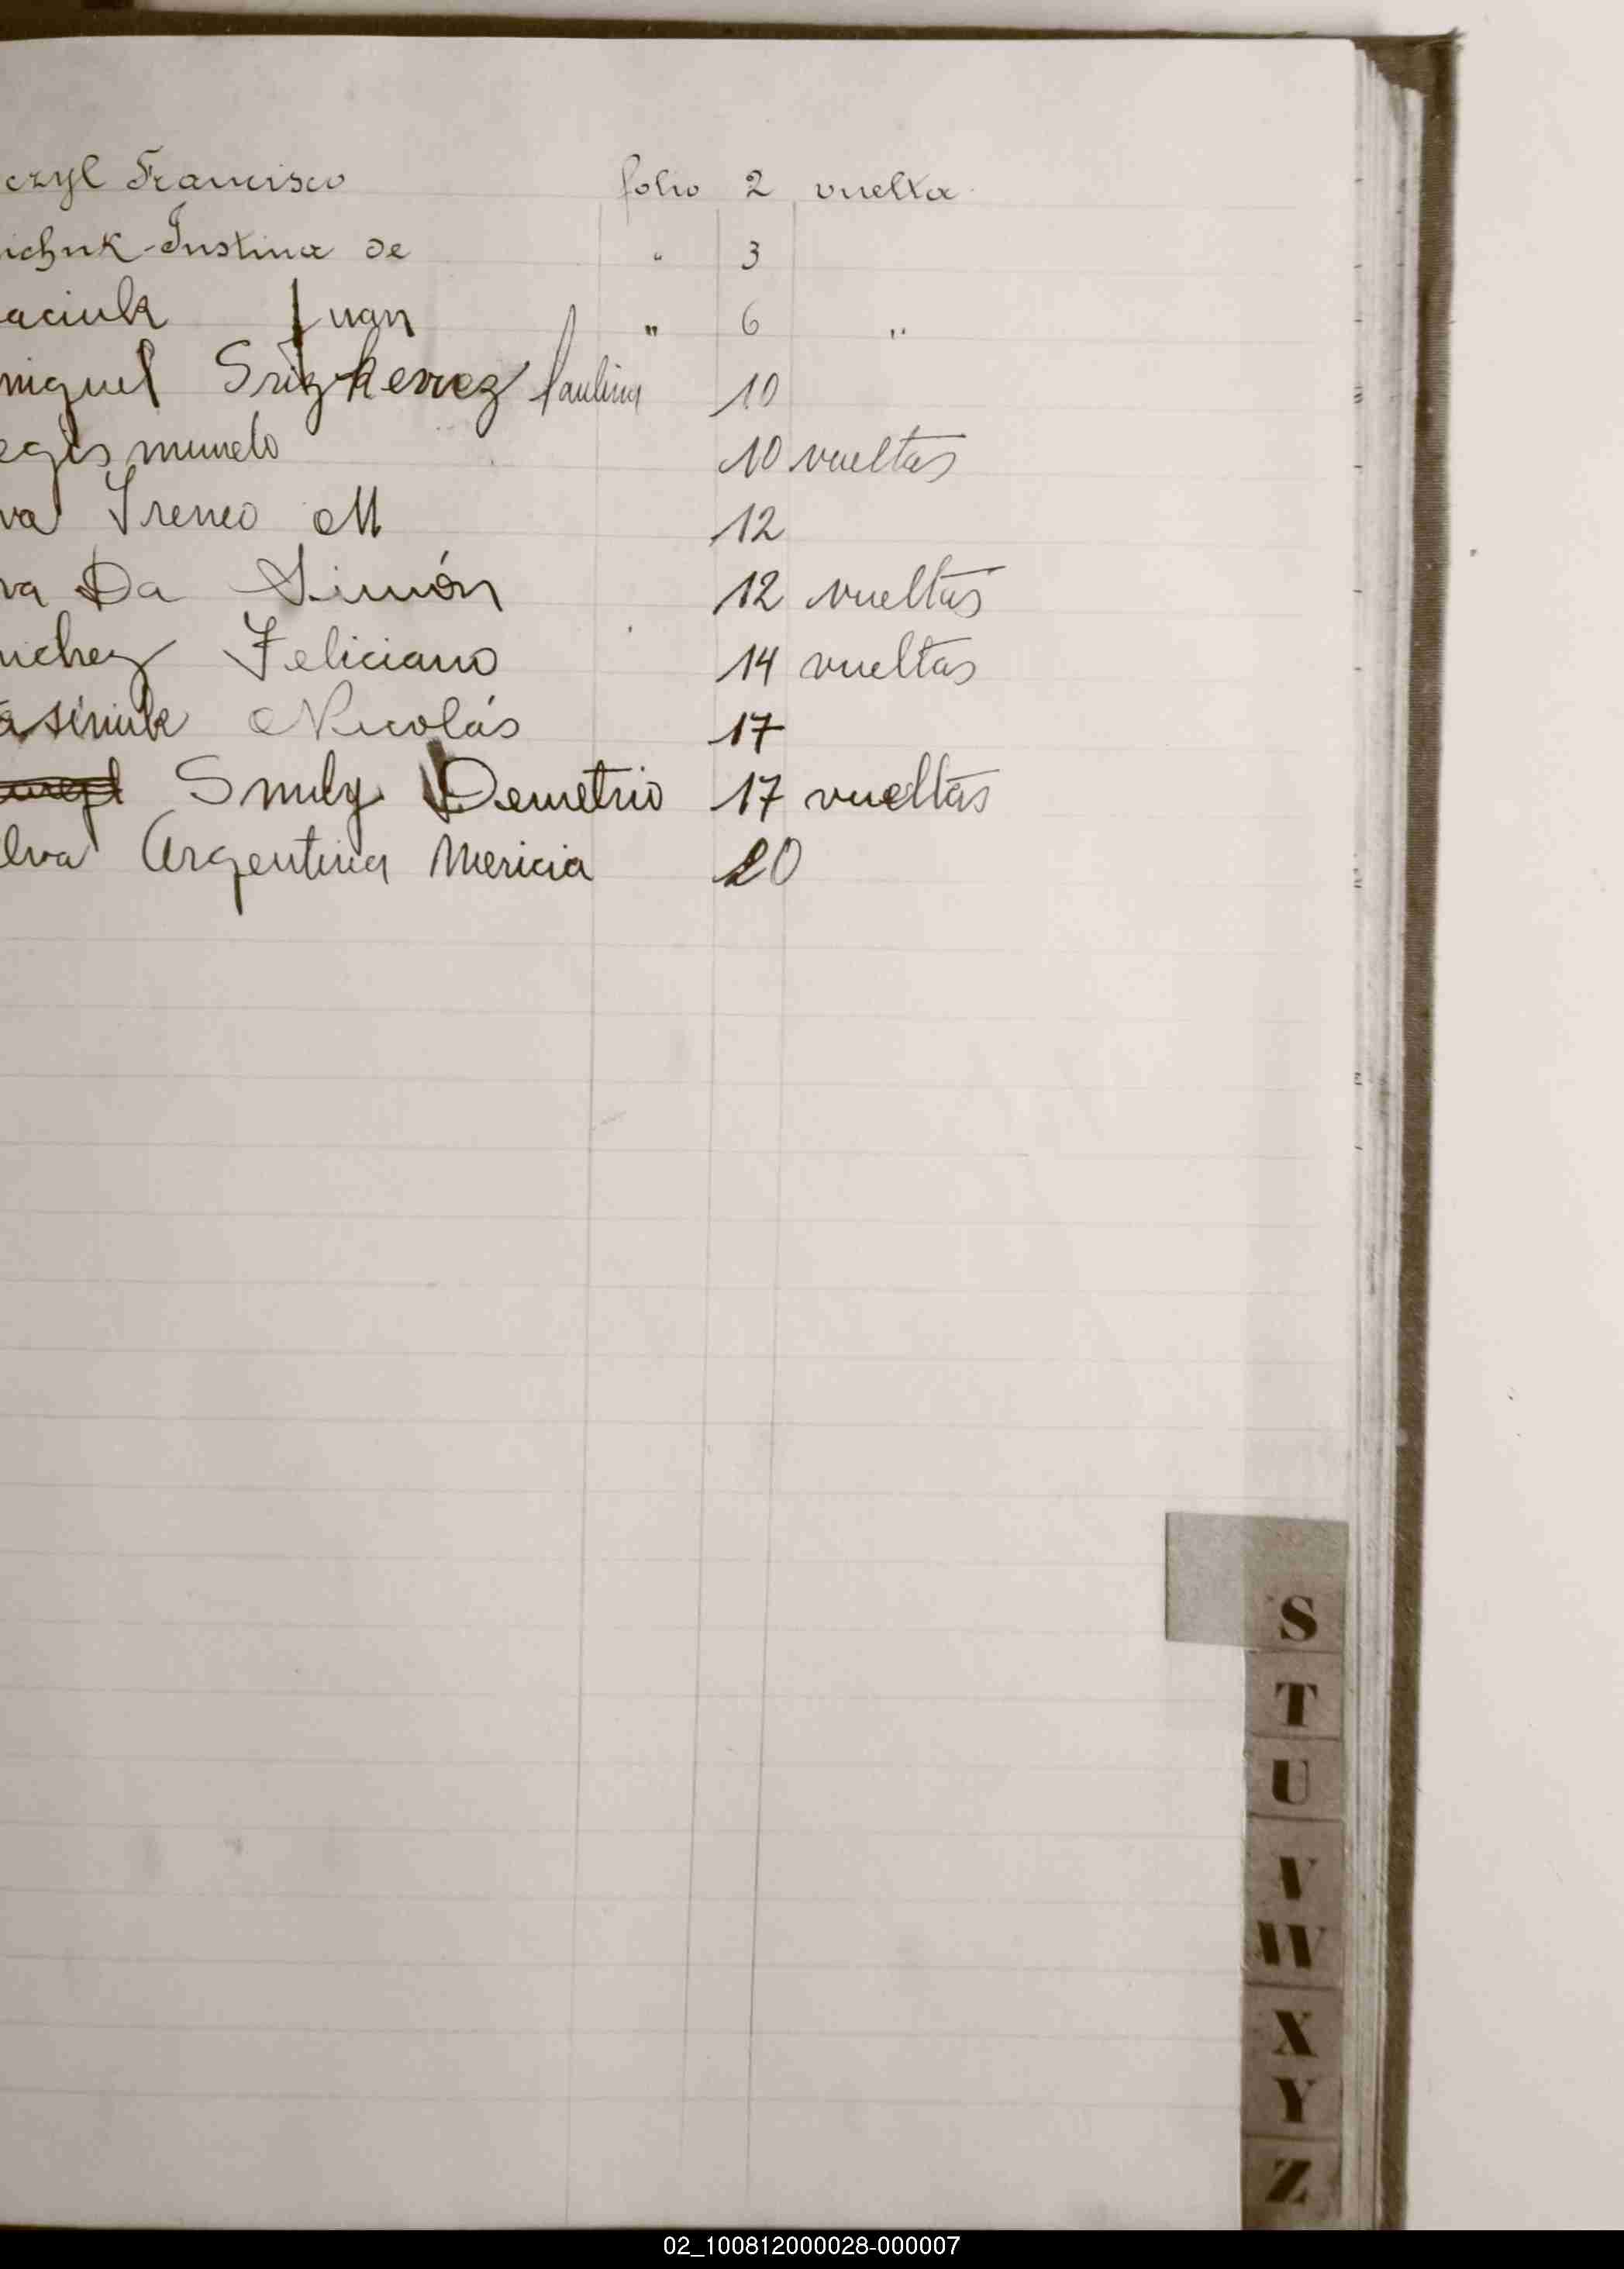 czyl Francisco folio 2 vuelta
ichuk Justina de " 3
aciuk Juan " 6 "
miguel Paulina 10
egismundo 10 vueltas
va Ireneo M 12
va Da Simón 12 vueltas
nchez Feliciano 14 vueltas
asiniuk Nicolás 17
Smuly Demetrio 17 vueltas
lva Argentina Mericia 20
S
T
U
V
W
X
Y
Z
02_100812000028-000007